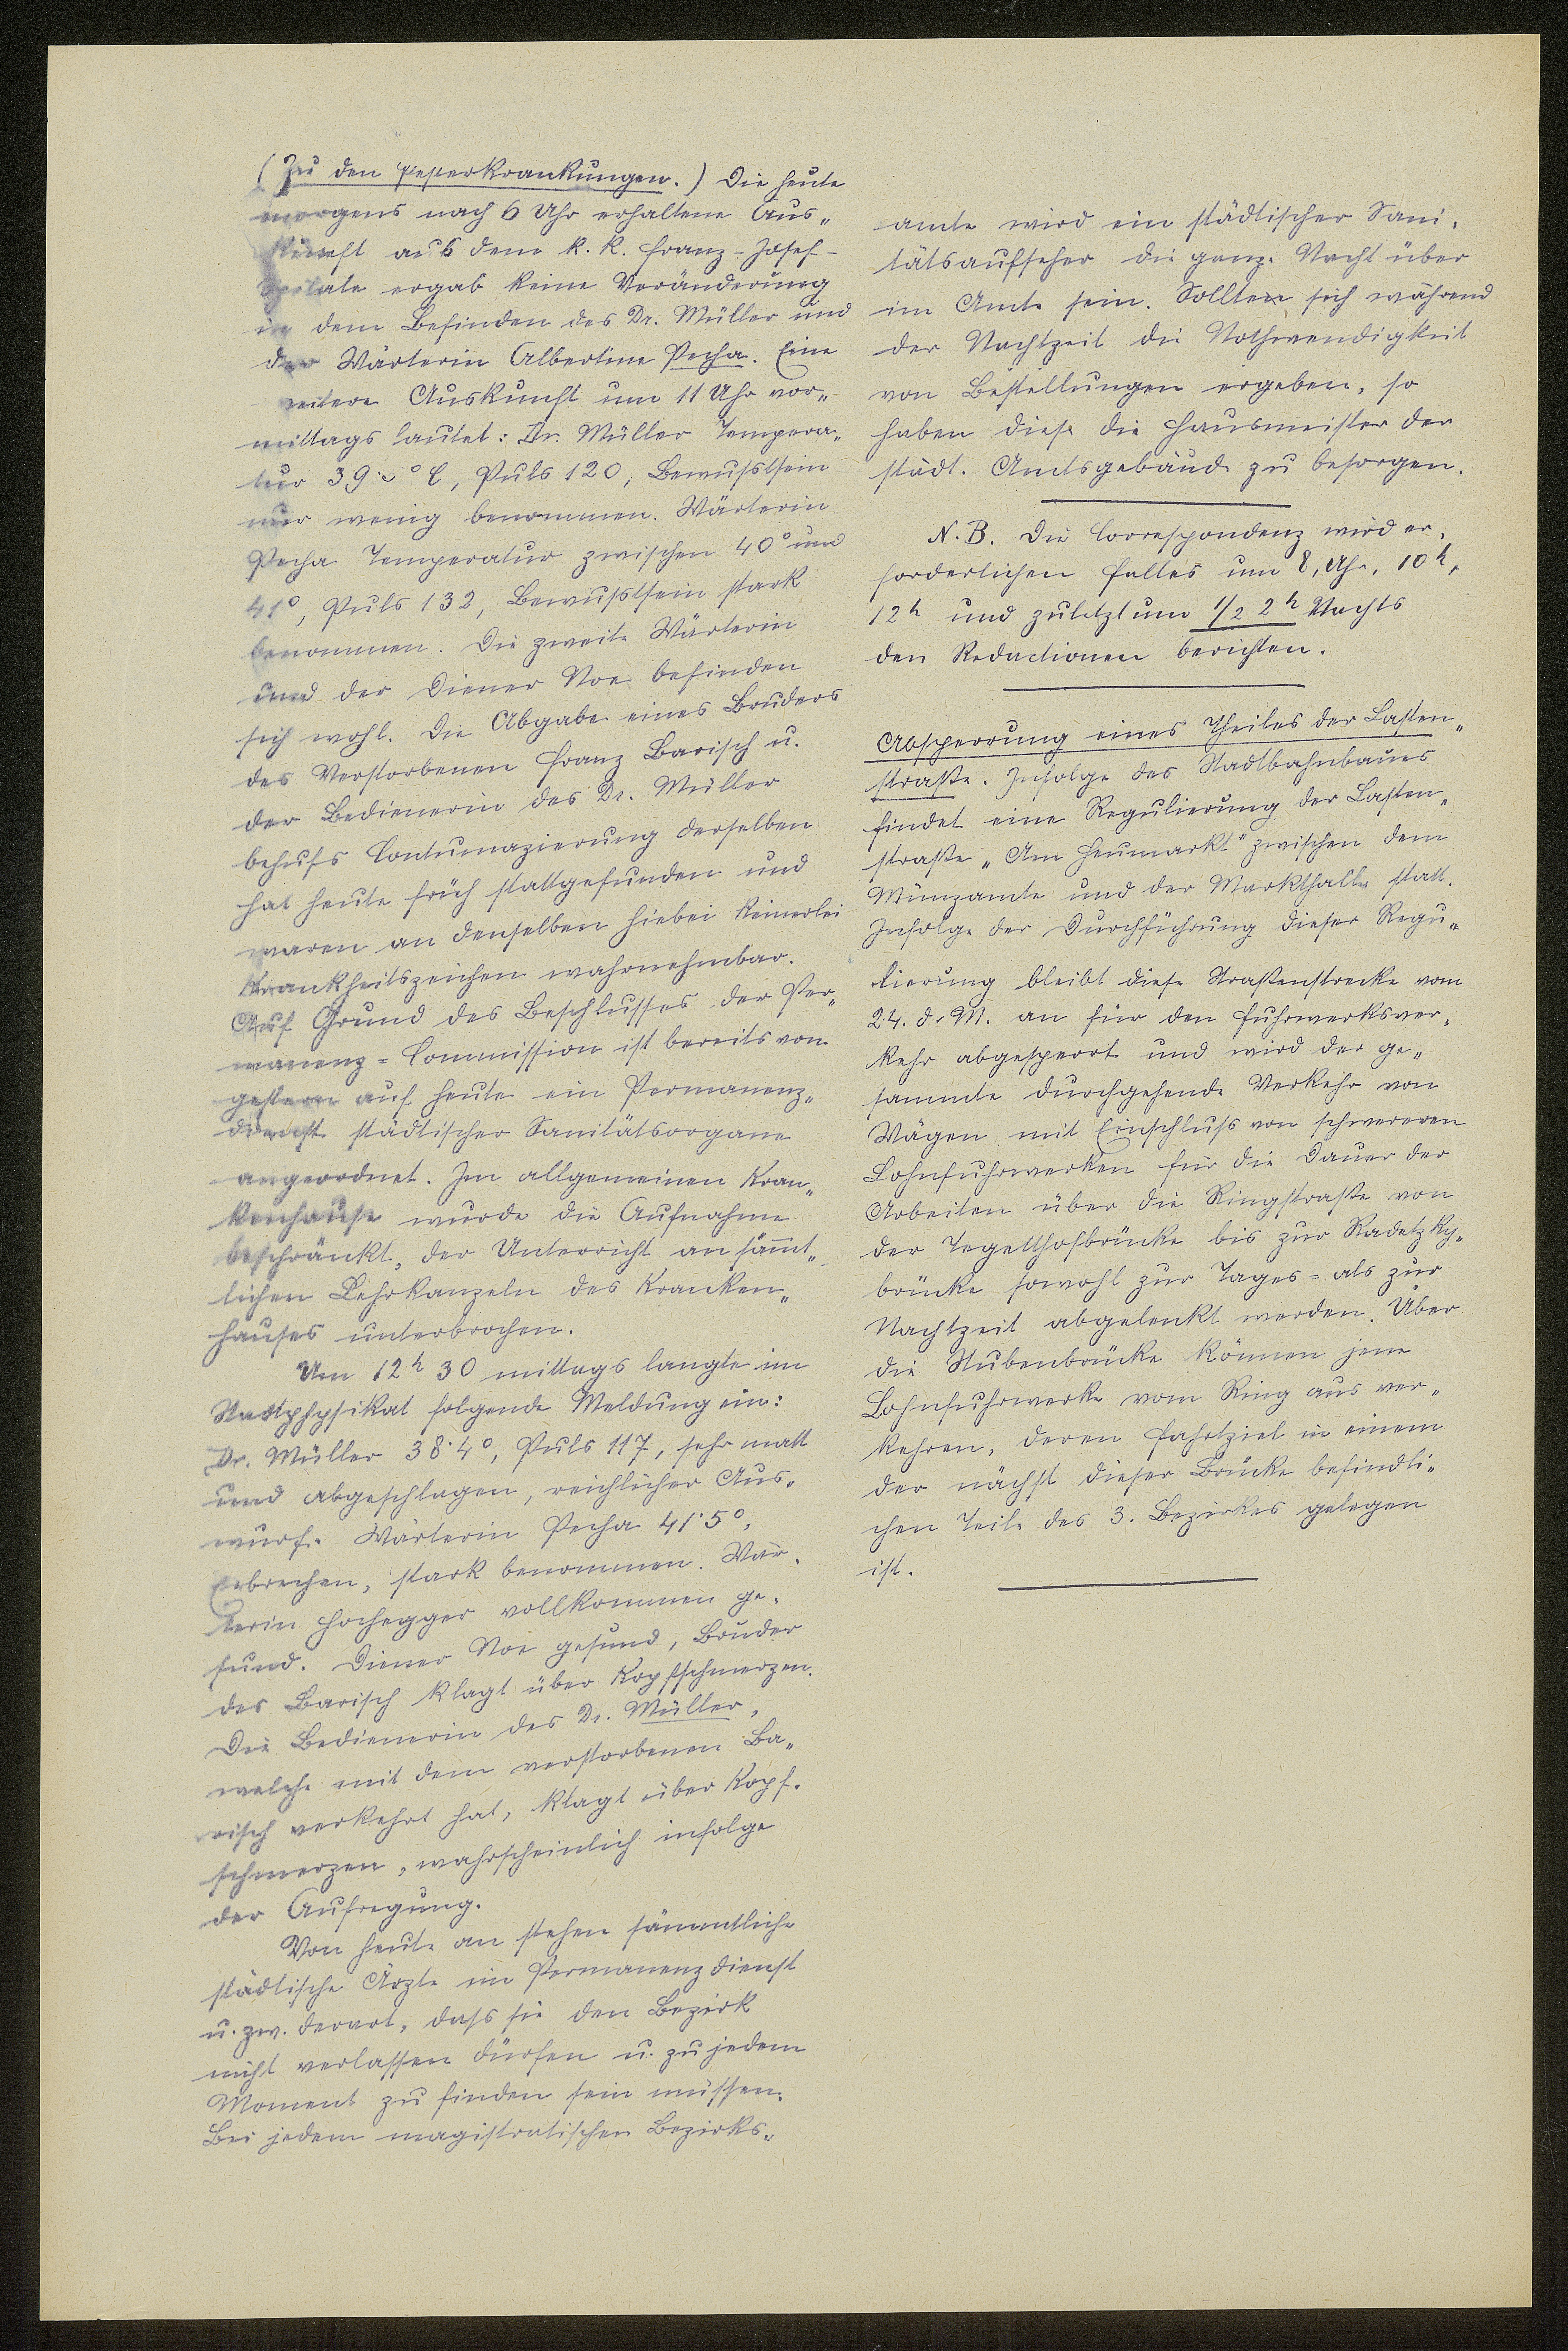 (Zu den Pesterkrankungen.) Die heute
morgens nach 6 Uhr erhaltene Aus„
kunft aus dem k. k. Franz-Josef-
Spitale ergab keine Veränderung
in dem Befinden des Dr. Müller und
der Wärterin Albertine Pecha. Eine
weitere Auskunft um 11 Uhr vor„
mittags lautet: Dr. Müller Tempera„
tur 39 ° C, Puls 120, Bewußtsein
nur wenig benommen. Wärterin
Pecha Temperatur zwischen 40° und
41°, Puls 132, Bewußtsein stark
benommen. Die zweite Wärterin
und der Diener Noe befinden
sich wohl. Die Abgabe eines Bruders
des Verstorbenen Franz Barisch u.
der Bedienerin des Dr. Müller
behufs Contumazierung derselben
hat heute früh stattgefunden und
waren an denselben hiebei keinerlei
Krankheitszeichen wahrnehmbar.
Auf Grund des Beschlusses der Per„
manenz=Commission ist bereits von
gestern auf heute ein Permanenz„
dienst städtischer Sanitätsorgane
angeordnet. Im allgemeinen Kran„
kenhause wurde die Aufnahme
beschränkt, der Unterricht an sämt„
lichen Lehrkanzeln des Kranken„
hauses unterbrochen.
Um 12h 30 mittags langte im
Stadtphysikat folgende Meldung ein:
Dr. Müller 38·4°, Puls 117, sehr matt
und abgeschlagen, reichlicher Aus„
wurf. Wärterin Pecha 41·5°,
Erbrechen, stark benommen. Wär„
terin Hochegger vollkommen ge„
sund. Diener Noe gesund, Bruder
des Barisch klagt über Kopfschmerzen.
Die Bedienerin des Dr. Müller,
welche mit dem verstorbenen Ba„
risch verkehrt hat, klagt über Kopf„
schmerzen, wahrscheinlich infolge
der Aufregung.
Von heute an stehen sämmtliche
städtische Ärzte im Permanenzdienst
u. zw. derart, dass sie den Bezirk
nicht verlassen dürfen u. zu jedem
Moment zu finden sein müssen.
Bei jedem magistratischen Bezirks„
amte wird ein städtischer Sani„
tätsaufseher die ganze Nacht über
im Amte sein. Sollten sich während
der Nachtzeit die Nothwendigkeit
von Bestellungen ergeben, so
haben diese die Hausmeister der
städt. Amtsgebäude zu besorgen.
N. B. Die Correspondenz wird er„
forderlichen Falles um 8 Uhr, 10h,
12h und zuletzt um 1/2 2h Nachts
den Redactionen berichten.
Absperrung eines Theiles der Lasten„
straße. Infolge des Stadtbahnbaues
findet eine Regulierung der Lasten„
straße „Am Heumarkt" zwischen dem
Münzamte und der Markthalle statt.
Infolge der Durchführung dieser Regu„
lierung bleibt diese Straßenstrecke vom
24. d. M. an für den Fuhrwerksver„
kehr abgesperrt und wird der ge„
sammte durchgehende Verkehr von
Wägen mit Einschluß von schwereren
Lohnfuhrwerken für die Dauer der
Arbeiten über die Ringstraße von
der Tegetthofbrücke bis zur Radetzky„
brücke sowohl zur Tages= als zur
Nachtzeit abgelenkt werden. Über
die Stubenbrücke können jene
Lohnfuhrwerke vom Ring aus ver„
kehren, deren Fahrtziel in einem
der nächst dieser Brücke befindli„
chen Teile des 3. Bezirkes gelegen
ist.